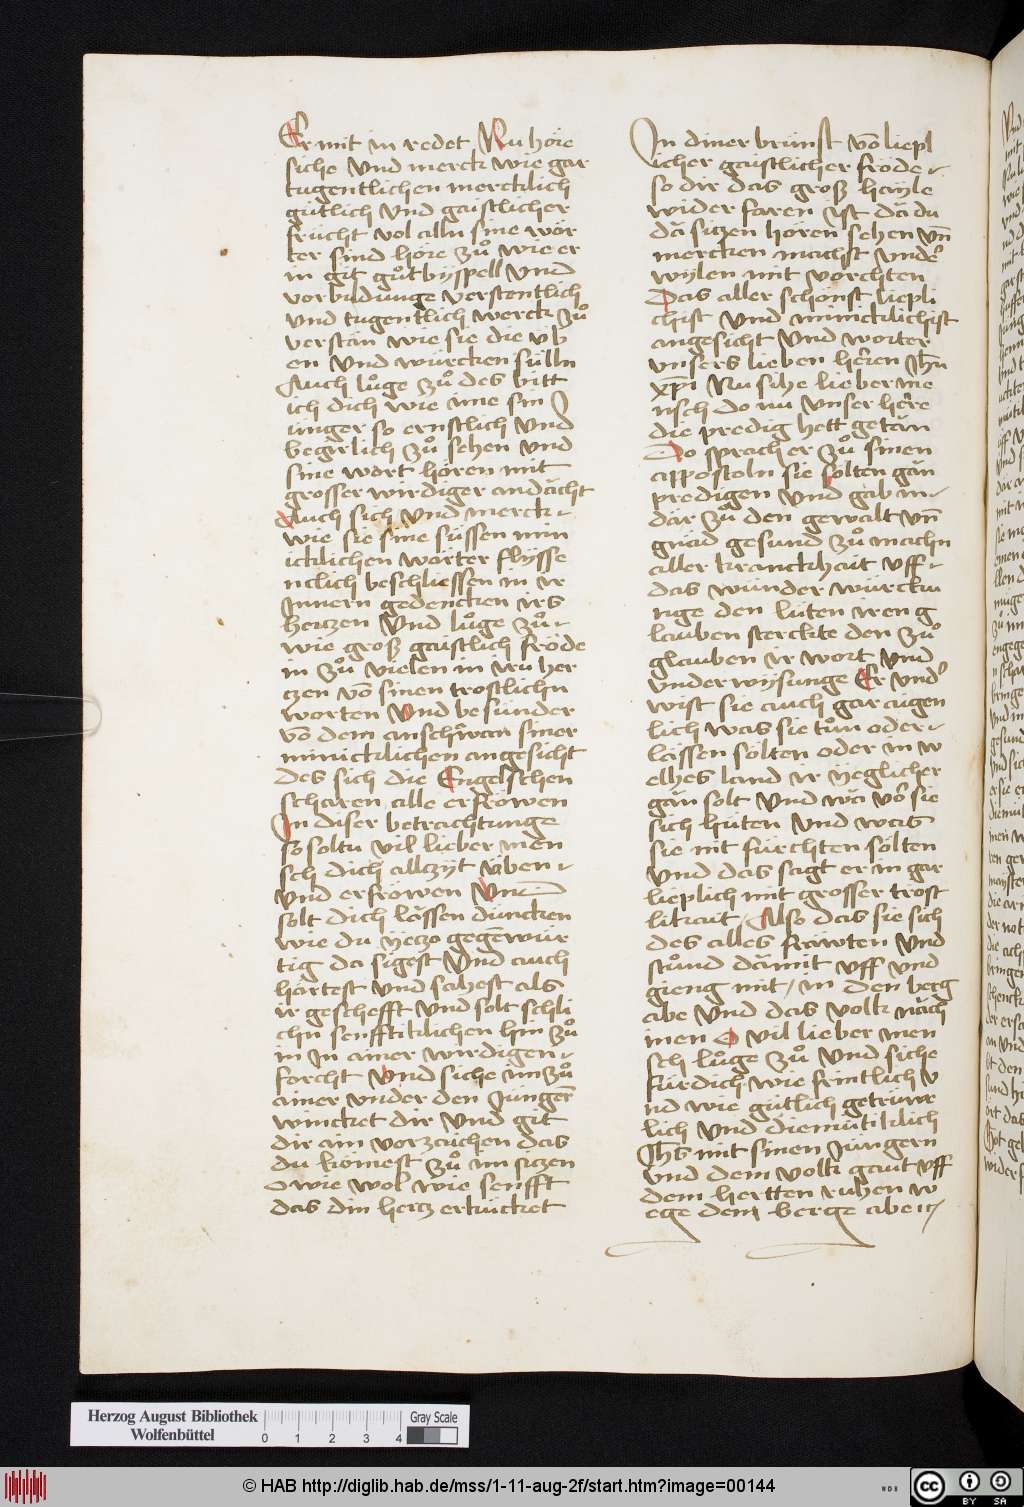 Er mit in redet Nu höre
siche Vnd merck wie gar
tugentlichen mercklich
gütlich Vnd gaistlicher
frücht vol alln sine wör
ter sind höre zů wie er
in git gůt byspell Vnd
vorbildunge verstentlich
Vnd tugentlich werck zů
verstän wie sie die vb
en Vnd würcken sülln
Auch lůge zů des bitt
ich dich wie ime sin J
ünger so ernstlich Vnd
begirlich zů sehen Vnd
sine wort hören mit
grosser wirdiger andächt
Auch sich Vnd merck
wie sie sine süssen min
icklichen wörter flysse
nclich beschliessen in ir
Innern gedencken irs
hertzen Vnd lůge zů
wie groß gaistlich fröde
in zů vielen in iru her
czen võ sinen trostlichn
worten Vnd besünder
võ dem anschöwan siner
minicklichen angesicht
des sich die Engelschen
scharen alle erfröwen
In diser betrachtunge
so soltu vil lieber men
sch dich allczyt üben
Vnd erfröwen Vnd
solt dich lässen duncken
wie du yeczo gegẽwür
tig da sigest Vnd auch
hörtest Vnd sahest als
ir geschefft Vnd solt schli
chn senfftiklichen hin zů
in In ainer wirdigen
forcht Vnd siche im zů
ainer vnder den Jüngeñ
wincket dir Vnd git
dir ain vorzaichen das
du kömest zů im siczen
O wie wol wie senfft
das din hercz erkücket
In diner brünst võ liepl
icher gaistlicher fröde
so dir das groß hayle
wider faren yst dä du
dä siczen hören sehen vñ
mercken machst vnder
wylen mit vorchten
Das aller schonst liepli
chist Vnd minicklichist
angesicht Vnd worter
vnsers lieben heren Jhũ
xp̃i Nu sihe lieber me
nsch do nu Vnser here
die predig hett getän
Do sprach er zů sinen
appostoln sie sölten gän
predigen Vnd gab in
där zů den gewalt vñ
gnäd gesund zů machn
aller kranckhait vff
das wünder würcku
nge den lüten iren g
lauben sterckte den zů
glauben ir wort Vnd
Vnder wysunge Er Vnd
wist sie auch gar aigen
lich was sie tůn oder
lässen sölten oder in w
elhes land ir yeglicher
gän solt Vnd wä võr sie
sich hüten Vnd was
sie nit fürchten sölten
Vnd das sagt er in gar
lieplich mit grosser trost
likait / Also das sie sich
des alles fräwten Vnd
stůnd dämit vff Vnd
gieng mit / in den berg
abe Vnd das volk näch
imen O vil lieber men
sch lůge zů Vnd siche
für dich wie frintlich v
nd wie gütlich getrüw
lich Vnd diemütiklich
Jhs mit sinen Jüngern
Vnd dem volk gaut vff
dem hertten ruhen w
ege dem berge abe
Herzog August Bibliothek
Wolfenbüttel
0 1 2 3 4
Gray Scale
© HAB http://diglib.hab.de/mss/1-11-aug-2f/start.htm?image=00144
WDB
cc BY SA